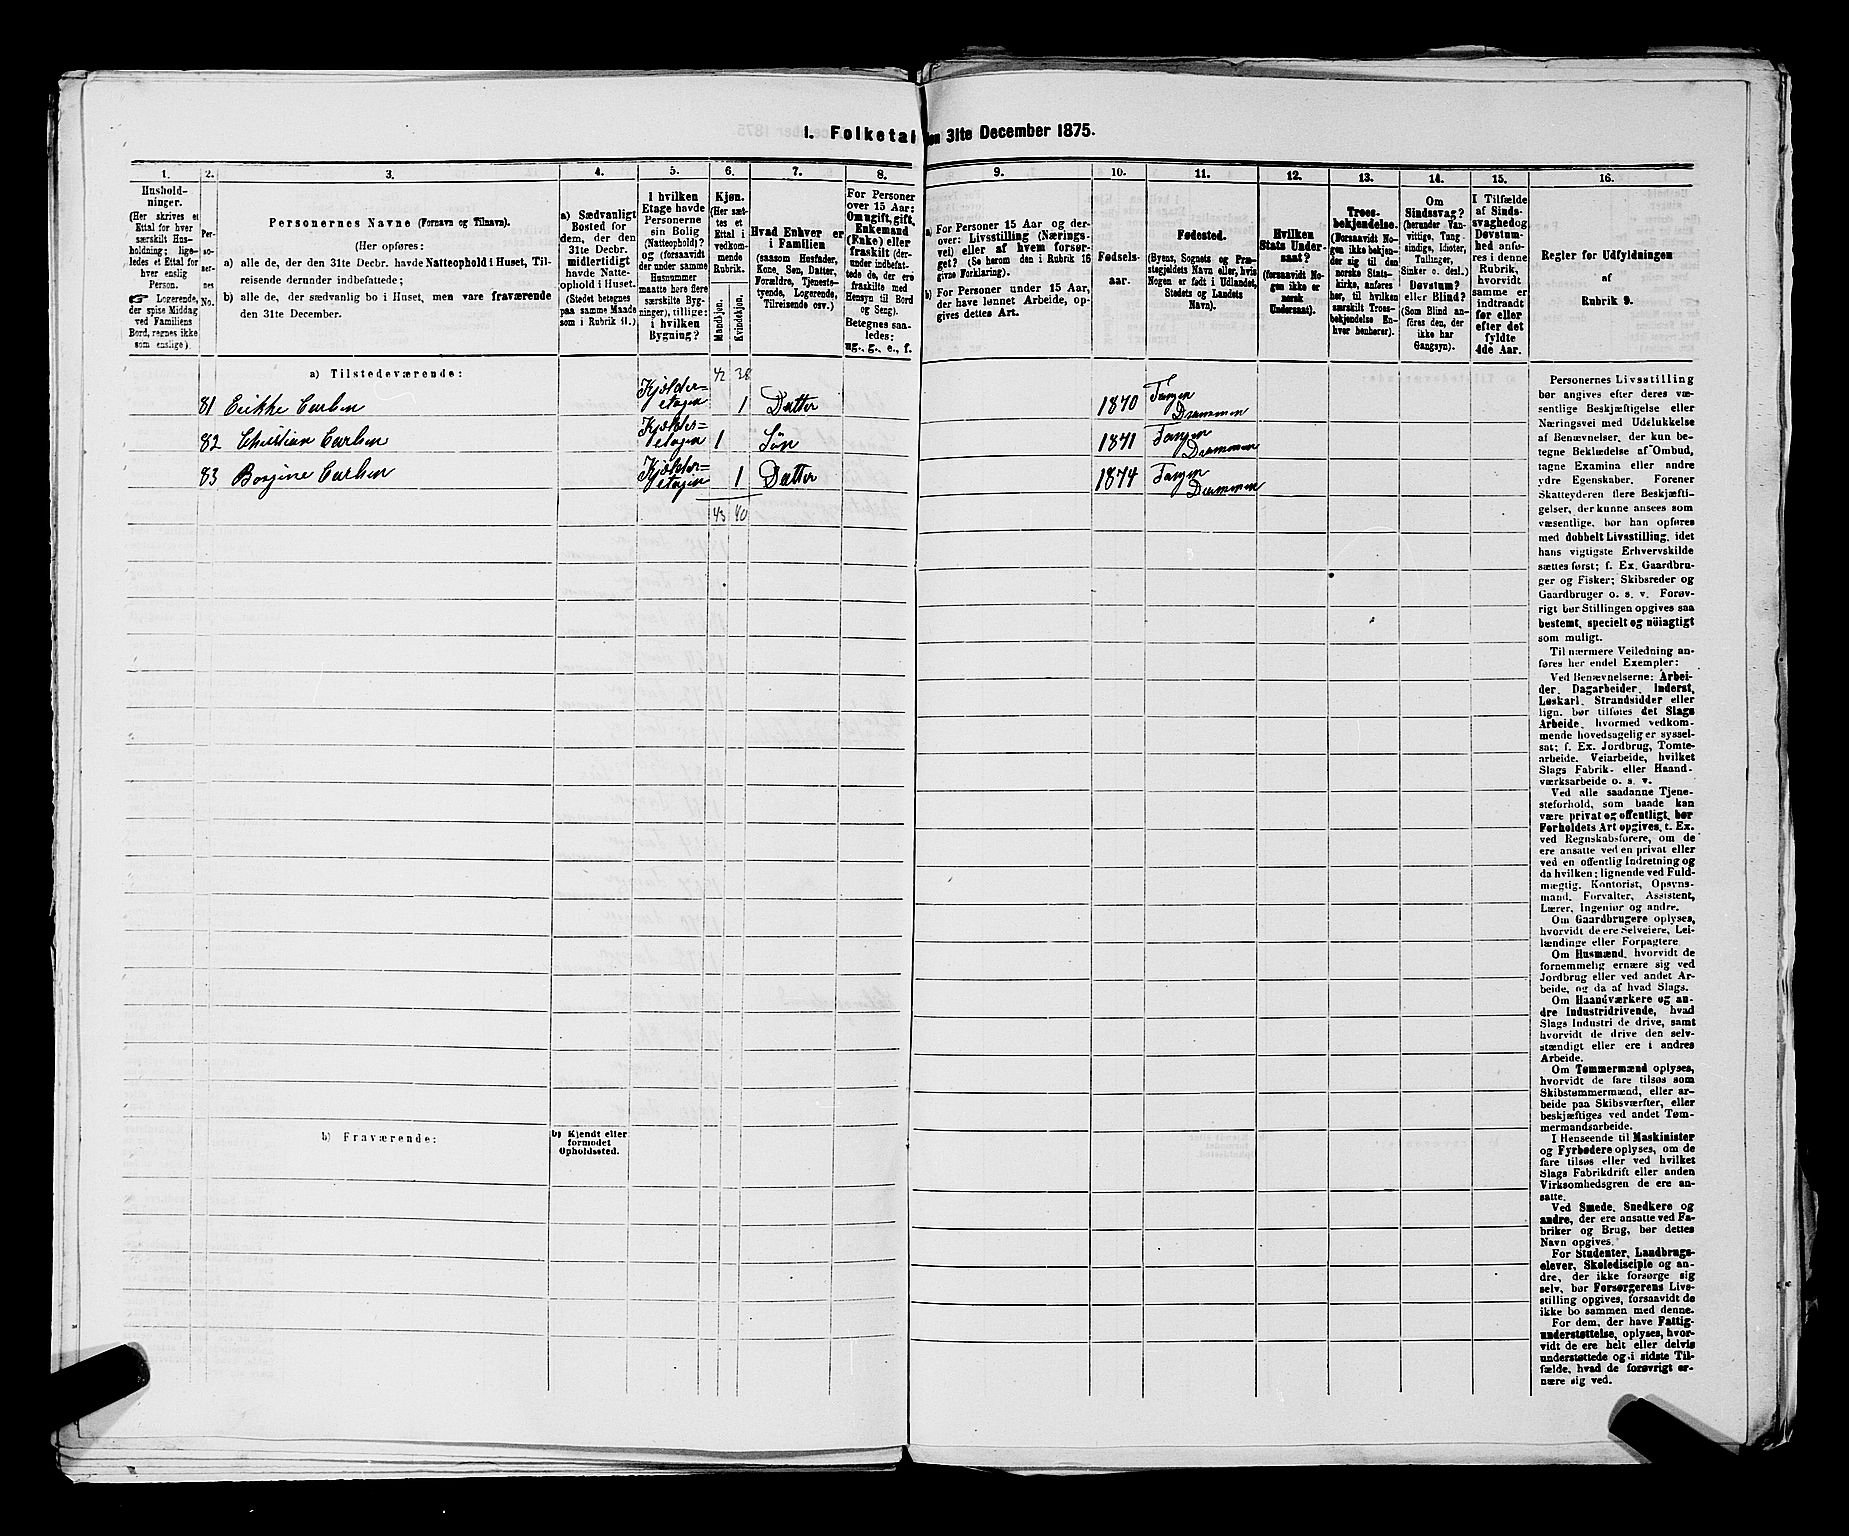 1. Folketal den 31te December 1875.
1.
Hushold-
ninger.
(Her skrives et
Ettal for hver
særskilt Hus-
holdning; lige-
ledes et Ettal for
hver enslig
Person.
☞ Logerende,
der spise Middag
ved Familiens
Bord, regnes ikke
som enslige).
2.
Per-
so-
ner-
nes
No.
3.
Personernes Navne (Fornavn og Tilnavn).
(Her opføres:
a) alle de, der den 31te Decbr. havde Natteophold i Huset, Til-
reisende derunder indbefattede;
b) alle de, der sædvanlig bo i Huset, men vare fraværende
den 31te December.
4.
a) Sædvanligt
Bosted for
dem, der den
31te Decbr.
midlertidigt
havde Natte-
ophold i Huset.
(Stedet betegnes
paa samme Maade
som i Rubrik 11.)
5.
I hvilken
Etage havde
Personerne
sin Bolig
(Natteophold)?
og (forsaavidt
der under samme
Husnummer
maatte høre flere
særskilte Byg-
ninger), tillige:
i hvilken
Bygning?
6.
Kjøn.
(Her sæt-
tes et
Ettal i
vedkom-
mende
Rubrik.
Mandkjøn.
Kvindekjøn.
7.
Hvad Enhver er
i Familien
(saasom Husfader,
Kone, Søn, Datter,
Forældre, Tjeneste-
tyende, Logerende,
Tilreisende osv.)
8.
For Personer
over 15 Aar:
Om ugift, gift,
Enkemand
(Enke) eller
fraskilt (der-
under indbefat-
tede de, der ere
fraskilte med
Hensyn til Bord
og Seng).
Betegnes saa-
ledes:
ug., g., e., f.
9.
a) For Personer 15 Aar og der-
over: Livsstilling (Nærings-
vei) eller af hvem forsør-
get? (Se herom den i Rubrik 16
givne Forklaring).
b) For Personer under 15 Aar,
der have lønnet Arbeide, op-
gives dettes Art.
10.
Fødsels-
aar.
11.
Fødested.
(Byens, Sognets og Præ-
stegjeldets Navn eller, hvis
Nogen er født i Udlandet,
Stedets og Landets
Navn).
12.
Hvilken
Stats Under-
saat?
(forsaavidt No-
gen ikke er
norsk
Undersaat).
13.
Troes-
bekjendelse.
(Forsaavidt No-
gen ikke bekjen-
der sig til den
norske Stats-
kirke, anføres
her, til hvilken
særskilt Troes-
bekjendelse En-
hver henhører).
14.
Om
Sindssvag?
(herunder Van-
vittige, Tung-
sindige, Idioter,
Tullinger,
Sinker o. desl.)
Døvstum?
eller Blind?
(Som Blind an-
føres den, der
ikke har
Gangsyn).
15.
I Tilfælde
af Sinds-
svaghed og
Døvstum-
hed anfø-
res i denne
Rubrik,
hvorvidt
samme er
indtraadt
før eller
efter det
fyldte
4de Aar.
16.
Regler for Udfyldningen
af
Rubrik 9.
a) Tilstedeværende:
42 38
81 Erikke Carlsen Kjælder=etagen 1 Datter 1870 Tangen Drammen
82 Christian Carlsen Kjælder=etagen 1 Søn 1871 Tangen Drammen
83 Borgine Carlsen Kjælder=etagen 1 Datter 1874 Tangen Drammen
43 40
b) Fraværende:
b) Kjendt eller
formodet
Opholdssted.
Personernes Livsstilling
bør angives efter deres væ-
sentlige Beskjæftigelse eller
Næringsvei med Udelukkelse
af Benævnelser, der kun be-
tegne Beklædelse af Ombud,
tagne Examina eller andre
ydre Egenskaber. Forener
Skatteyderen flere Beskjæfti-
gelser, der kunne ansees som
væsentlige, bør han opføres
med dobbelt Livsstilling, idet
hans vigtigste Erhvervskilde
sættes først; f. Ex. Gaardbru-
ger og Fisker; Skibsreder og
Gaardbruger o. s. v. Forøv-
rigt bør Stillingen opgives saa
bestemt, specielt og nöiagtigt
som muligt.
Til nærmere Veiledning an-
føres her endel Exempler:
Ved Benævnelserne: Arbei-
der, Dagarbeider, Inderst,
Løskarl, Strandsidder eller
lign. bør tilføies det Slags
Arbeide, hvormed vedkom-
mende hovedsagelig er syssel-
sat; f. Ex. Jordbrug, Tomte-
arbeide, Veiarbeide, hvilket
Slags Fabrik- eller Haand-
værksarbeide o. s. v.
Ved alle saadanne Tjene-
steforhold, som baade kan
være privat og offentligt, bør
Forholdets Art opgives, t. Ex.
ved Regnskabsførere, om de
ere ansatte ved en privat eller
ved en offentlig Indretning og
da hvilken; lignende ved Fuld-
mægtig, Kontorist, Opsyns-
mand, Forvalter, Assistent,
Lærer, Ingeniør og andre.
Om Gaardbrugere oplyses,
hvorvidt de ere Selveiere, Lei-
lændinge eller Forpagtere.
Om Husmænd, hvorvidt de
fornemmelig ernære sig ved
Jordbrug eller ved andet Ar-
beide, og da af hvad Slags.
Om Haandværkere og an-
dre Industridrivende, hvad
Slags Industri de drive, samt
hvorvidt de drive den selv-
stændigt eller ere i andres
Arbeide.
Om Tømmermænd oplyses,
hvorvidt de fare tilsøs som
Skibstømmermænd, eller ar-
beide paa Skibsværfter, eller
beskjæftiges ved andet Tøm-
mermandsarbeide.
I Henseende til Maskinister
og Fyrbødere oplyses, om de
fare tilsøs eller ved hvilket
Slags Fabrikdrift eller anden
Virksomhedsgren de ere an-
satte.
Ved Smede, Snedkere og
andre, der ere ansatte ved Fa-
briker og Brug, bør dettes
Navn opgives.
For Studenter, Landbrugs-
elever, Skoledisciple og an-
dre, der ikke forsørge sig
selv, bør Forsørgerens Livs-
stilling opgives, forsaavidt de
ikke bo sammen med denne.
For dem, der have Fattig-
understøttelse, oplyses, hvor-
vidt de ere helt eller delvis
understøttede og i sidste Til-
fælde, hvad de forøvrigt er-
nære sig ved.